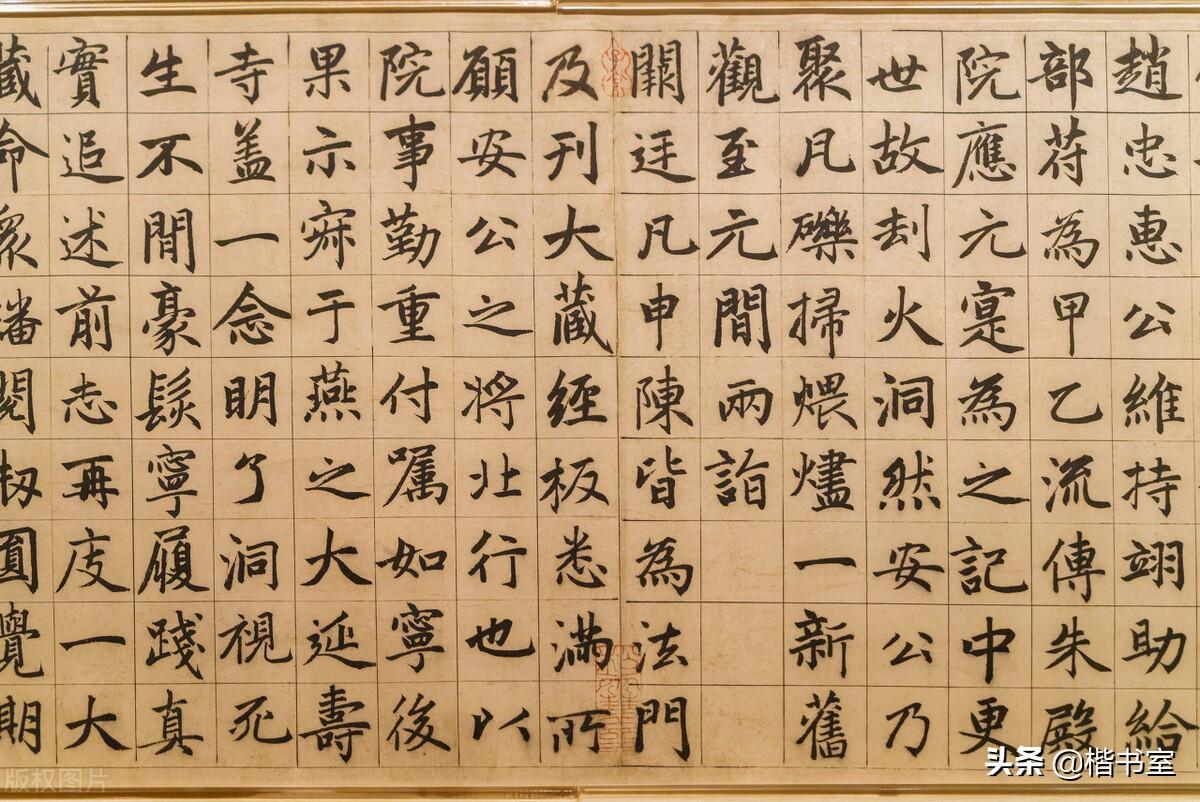 趙忠惠公維持翊助給
部苻為甲乙流傳朱殿
院應元寔為之記中更
世故刼火洞然安公乃
聚瓦礫掃煨燼一新舊
觀至元間兩詣
闕廷凡申陳皆為法門
及刊大藏經板悉滿所
願安公之將北行也以
院事勤重付嘱如寧後
果示寂于燕之大延壽
寺盖一念明了洞視死
生不間豪髮寧履踐真
實追述前志再度一大
藏命眾繙閱圓覺期
头条 @楷书室
版权图片